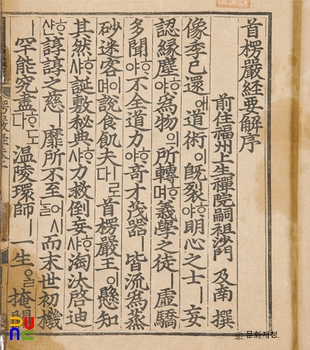 首楞嚴經要解序
前住福州上生禪院嗣祖沙門 及南 撰
像季已還애道術이旣裂야明心之士 妄
認緣塵야爲物의所轉며義學之徒 虛驕
多聞야不全道力야奇才茂器 皆流爲蒸
砂迷客며說食飢夫다로首楞嚴王이懸知
其然샤誕敷秘典샤力救倒妄샤淘汰啓迪
샨諄諄之慈 靡所不至어시而末世初機
罕能究盡다도温陵環師 一生을掩關
문화재청